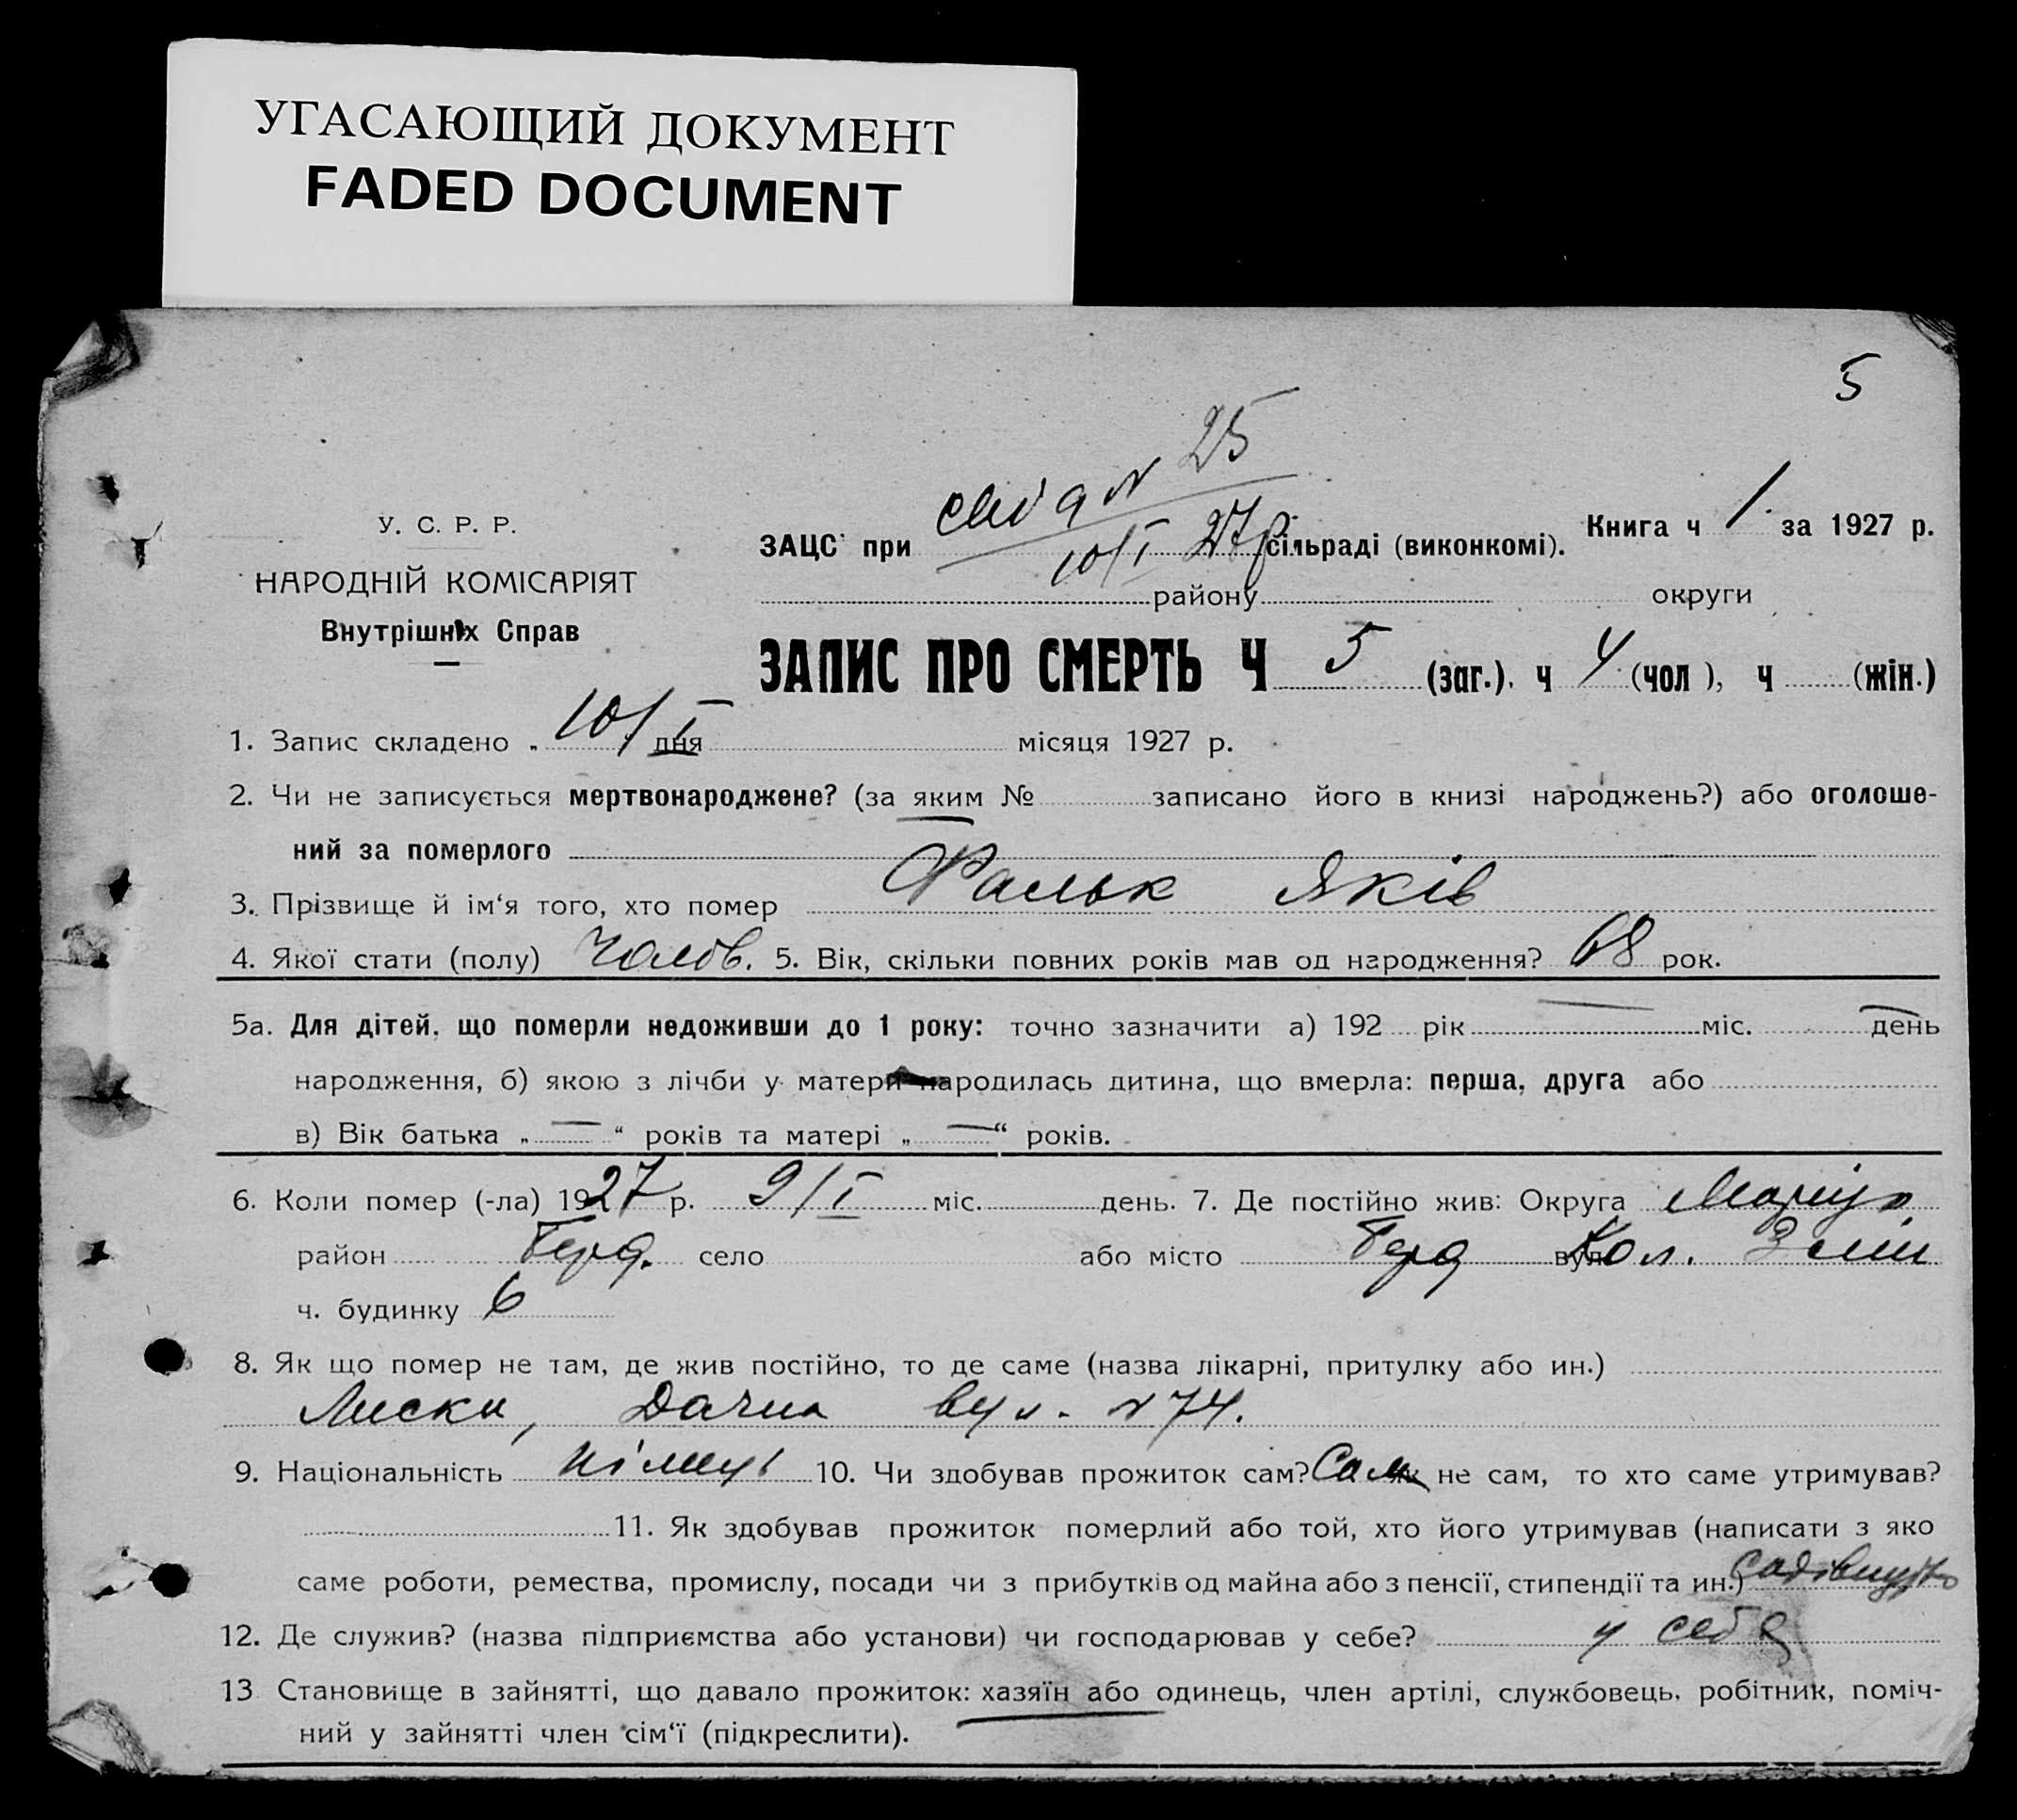 УГАСАЮЩИЙ ДОКУМЕНТ
FADED DOCUMENT
5
свід N 25
10/I 27р.
У. С. Р. Р.
НАРОДНІЙ КОМІСАРІЯТ
Внутрішніх Справ
ЗАЦС при сільраді (виконкомі). Книга ч 1. за 1927 р.
району округи
ЗАПИС ПРО СМЕРТЬ Ч 5 (заг.), ч 4 (чол), ч (жін.)
1. Запис складено „ 10/I дня місяця 1927 р.
2. Чи не записується мертвонароджене? (за яким № записано його в книзі народжень?) або оголоше-
ний за померлого
3. Прізвище й ім‘я того, хто помер Фальк Яків
4. Якої стати (полу) Чолов. 5. Вік, скільки повних років мав од народження? 68 рок.
5а. Для дітей, що померли недоживши до 1 року: точно зазначити а) 192 рік — міс. — день
народження, б) якою з лічби у матери народилась дитина, що вмерла: перша, друга або
в) Вік батька „ — “ років та матері „ — “ років.
6. Коли помер (-ла) 1927 р. 9/I міс. день. 7. Де постійно жив: Округа Маріуп
район Берд. село або місто Берд вул. Кол.
ч. будинку 6
8. Як що помер не там, де жив постійно, то де саме (назва лікарні, притулку або ин.)
Лиски, Дачна вул. N 74.
9. Національність німець 10. Чи здобував прожиток сам? Сам Як не сам, то хто саме утримував?
11. Як здобував прожиток померлий або той, хто його утримував (написати з яко
саме роботи, ремества, промислу, посади чи з прибутків од майна або з пенсії, стипендії та ин.)
12. Де служив? (назва підприємства або установи) чи господарював у себе? у себе
13 Становище в зайнятті, що давало прожиток: хазяїн або одинець, член артілі, службовець, робітник, поміч-
ний у зайнятті член сім‘ї (підкреслити).